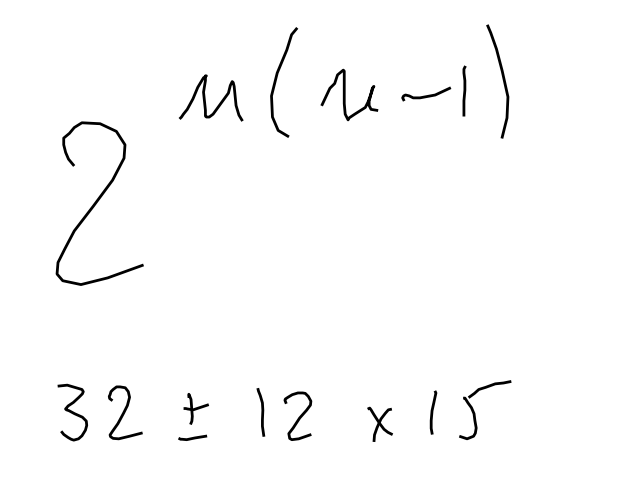 2^{n(n-1)}
32 ± 12 × 15